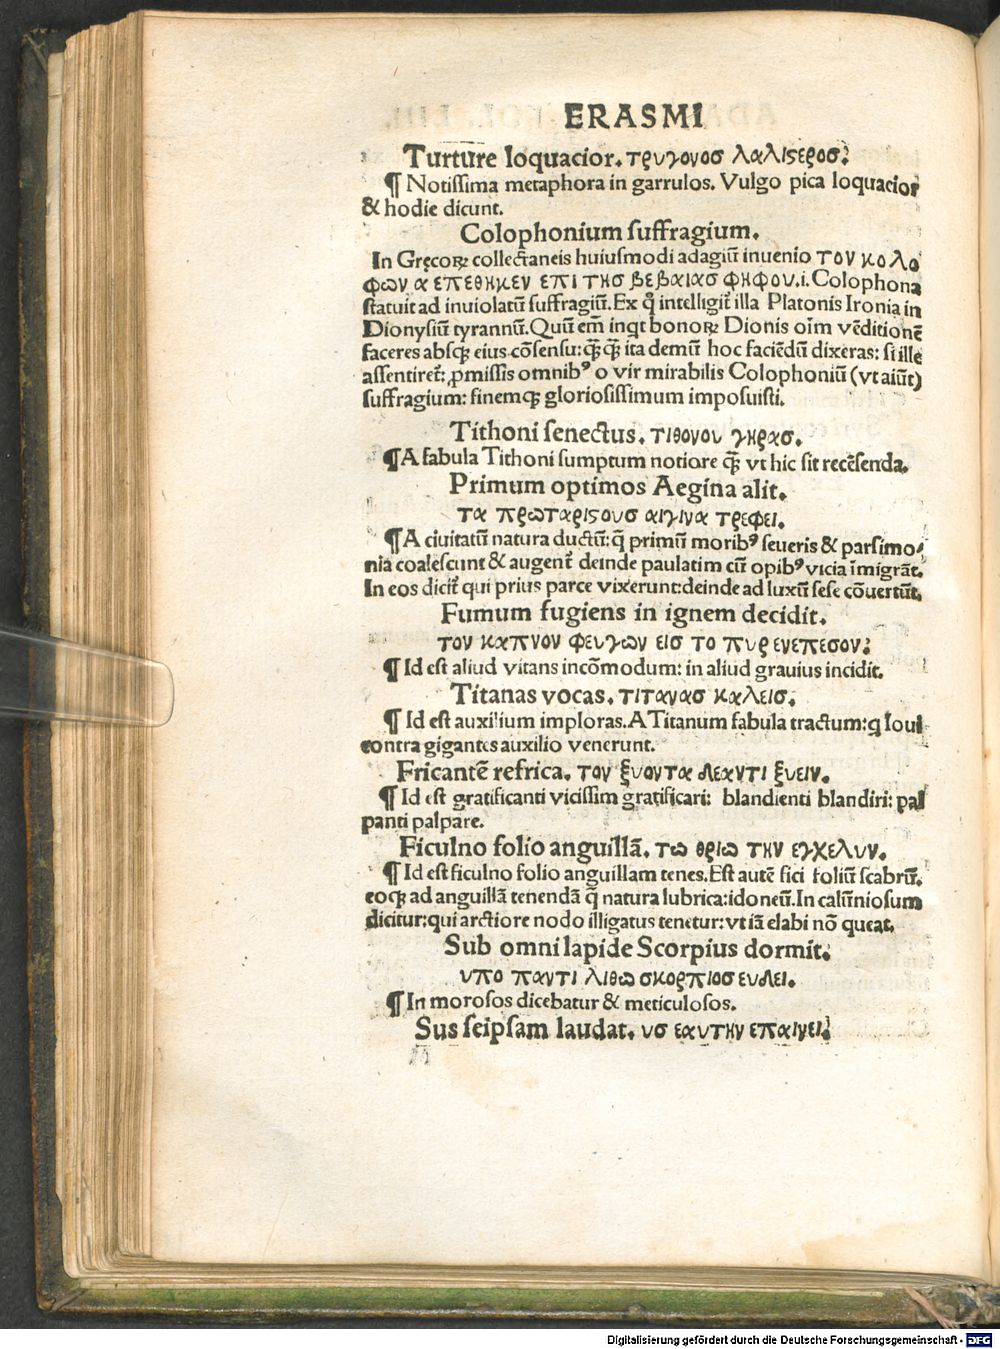 ERASMI
Turture loquacior. τρυγονοσ λαλιϛεροσ.
¶ Notissima metaphora in garrulos. Vulgo pica loquacior
& hodie dicunt.
Colophonium suffragium.
In Gręcoꝝ collectaneis huiusmodi adagiū inuenio τον κολο
φων α επεθηκεν επι τησ βεβαιασ φηφου.i. Colophona
statuit ad inuiolatū suffragiū. Ex q̄ intelligit̄ illa Platonis Ironia in
Dionysiū tyrannū. Quū em̄ inqt bonoꝝ Dionis oīm vēditionē
faceres absqꝫ eius cōsensu: qꝫ̄ qꝫ̄ ita demū hoc faciēdū dixeras: si ille
assentiret̄: ꝓmissis omnibꝰ o vir mirabilis Colophoniū (vt aiūt)
suffragium: finemqꝫ gloriosissimum imposuisti.
Tithoni senectus. τιθονου γηρασ.
¶ A fabula Tithoni sumptum notiore qꝫ̄ vt hic sit recēsenda.
Primum optimos Aegina alit.
τα πρωταριϛουσ αιγινα τρεφει.
¶ A ciuitatū natura ductū: q̄ primū moribꝰ seueris & parsimo-
nia coalescunt & augent̄ deinde paulatim cū opibꝰ vicia īmigrāt.
In eos dicit̄ qui prius parce vixerunt: deinde ad luxū sese cōuertūt.
Fumum fugiens in ignem decidit.
τον καπνον φευγων εισ το πυρ ενεπεσον.
¶ Id est aliud vitans incōmodum: in aliud grauius incidit.
Titanas vocas. τιτανασ καλεισ.
¶ Id est auxilium imploras. A Titanum fabula tractum: q Ioui
contra gigantes auxilio venerunt.
Fricantē refrica. τον ξυοντα δεαντι ξυειν.
¶ Id est gratificanti vicissim gratificari: blandienti blandiri: pal
panti palpare.
Ficulno folio anguillā. τω θριω την εγχελυν.
¶ Id est ficulno folio anguillam tenes. Est autē fici foliū scabrū.
eoqꝫ ad anguillā tenendā q̄ natura lubrica: idoneū. In calūniosum
dicitur: qui arctiore nodo illigatus tenetur: vt iā elabi nō queat.
Sub omni lapide Scorpius dormit.
υπο παντι λιθω σκορπιοσ ευδει.
¶ In morosos dicebatur & meticulosos.
Sus seipsam laudat. υσ εαυτην επαινει.
Digitalisierung gefördert durch die Deutsche Forschungsgemeinschaft - DFG